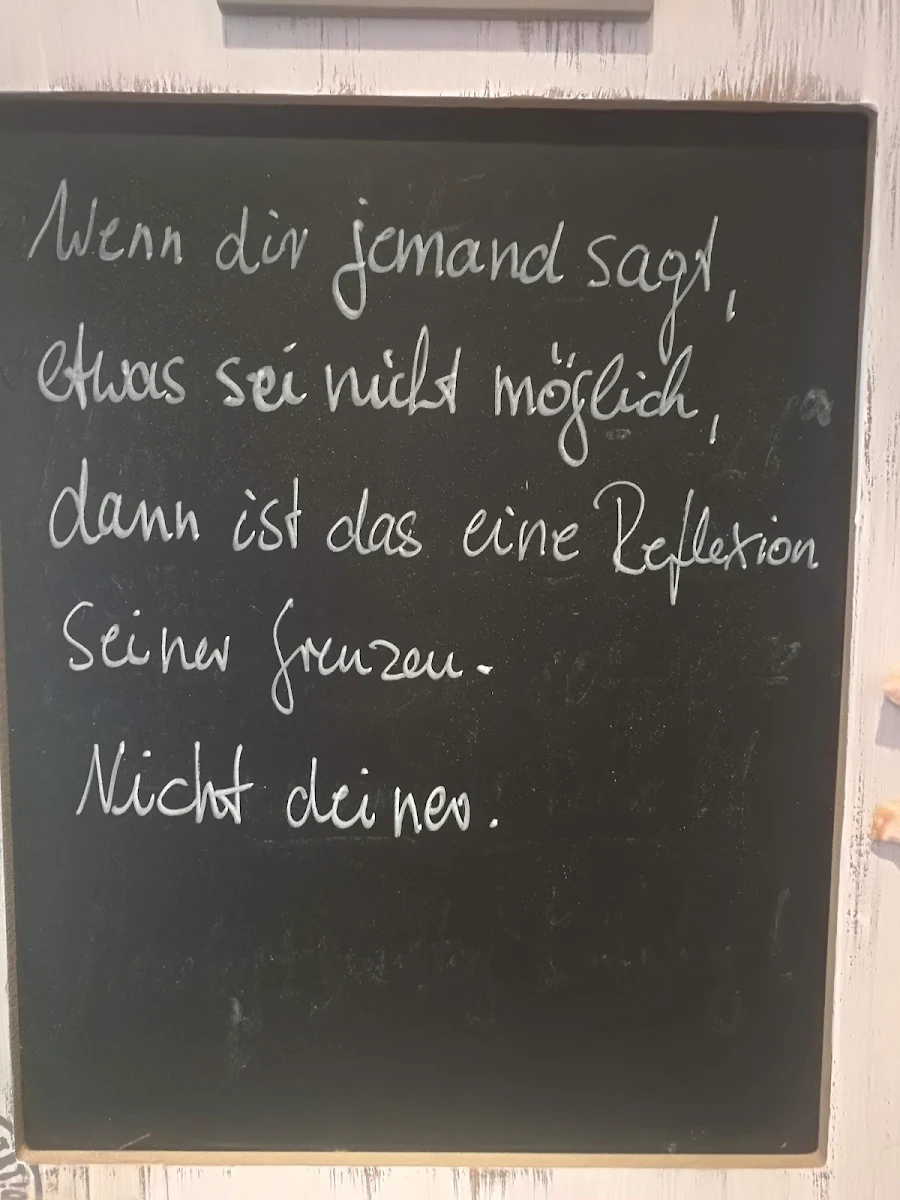 Wenn dir jemand sagt,
etwas sei nicht möglich,
dann ist das eine Reflexion
seiner Grenzen.
Nicht deiner.